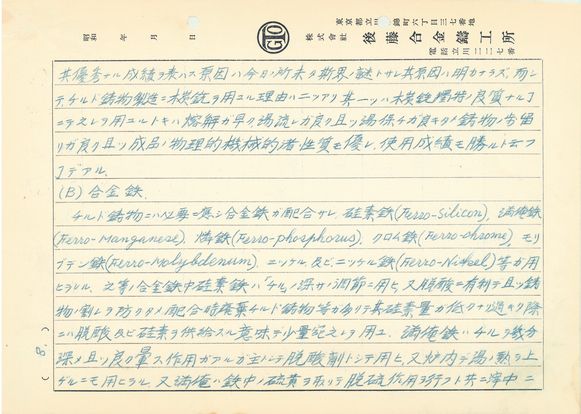 東京都立川錦町六丁目三七番地
株式會社 後藤合金鑄工所
電話立川二二二七番
昭和 年 月 日
GTO
其優秀ナル成績ヲ表ハス原因ハ今日ノ所未ダ斯界ノ謎トサレ其原因ハ明カナラズ、而シ
テチルド鋳物製造ニ木炭銑ヲ用ユル理由ハニツアリ其一ツハ木炭銑獨特ノ良質ナルコト
之レヲ用ユルトキハ熔解ガ早ク湯流レガ良ク且ツ湯保チガ良キタメ鋳物ノ歩留
リガ良ク且ツ成品ノ物理的機械的諸性質モ優レ、使用成績モ勝ル
デアル、
(B) 合金鉄、
チルド鋳物ニハ必要ニ應ジ合金鉄ガ配合サレ、硅素鉄(Ferro-Silicon)、満俺鉄
(Ferro-Manganese)、燐鉄(Ferro-phosphorus)、クロム鉄(Ferro-chrome)、モリ
ブデン鉄(Ferro-Molybdenum)、ニッケル及ビニッケル鉄(Ferro-Nickel)等ガ用
ヒラレル、之等ノ合金鉄中硅素鉄ハ「チル」ノ深サノ調節ニ用ヒ又脱酸ニ有利デ且ツ鋳
物ノ割レヲ防グタメ配合時廃棄チルド鋳物等ガ多クテ其硅素量ガ低クナリ過ギタ際
ニハ脱酸及ビ硅素ヲ供給スル意味デ少量宛之レヲ用ユ、満俺鉄ハチルヲ幾分
深メ且ツ良ク暈ス作用ガアルガ主トシテ脱酸劑トシテ用ヒ、又炉内デ湯ノ熱ヲ上
ゲルニモ用ヒラル、又満俺ハ鉄中ノ硫黄ヲ取リテ脱硫作用ヲ行フト共ニ滓中ニ
( 8. )